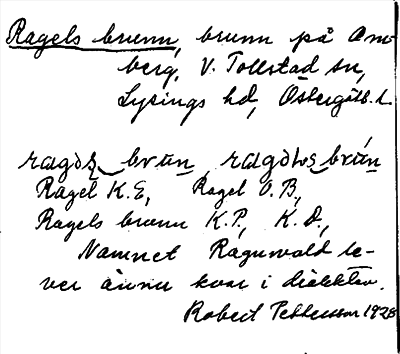 Ragels brunn, brunn på Om-
berg, V. Tollstad sn,
Lysings hd, Östergötl. l.
bru̇n, bru̇n
Ragel K.E, Ragel O.B,
Ragels brunn K.P, K.D,
Namnet Ragnvald le-
ver ännu kvar i dialekten.
Robert Pettersson 1928